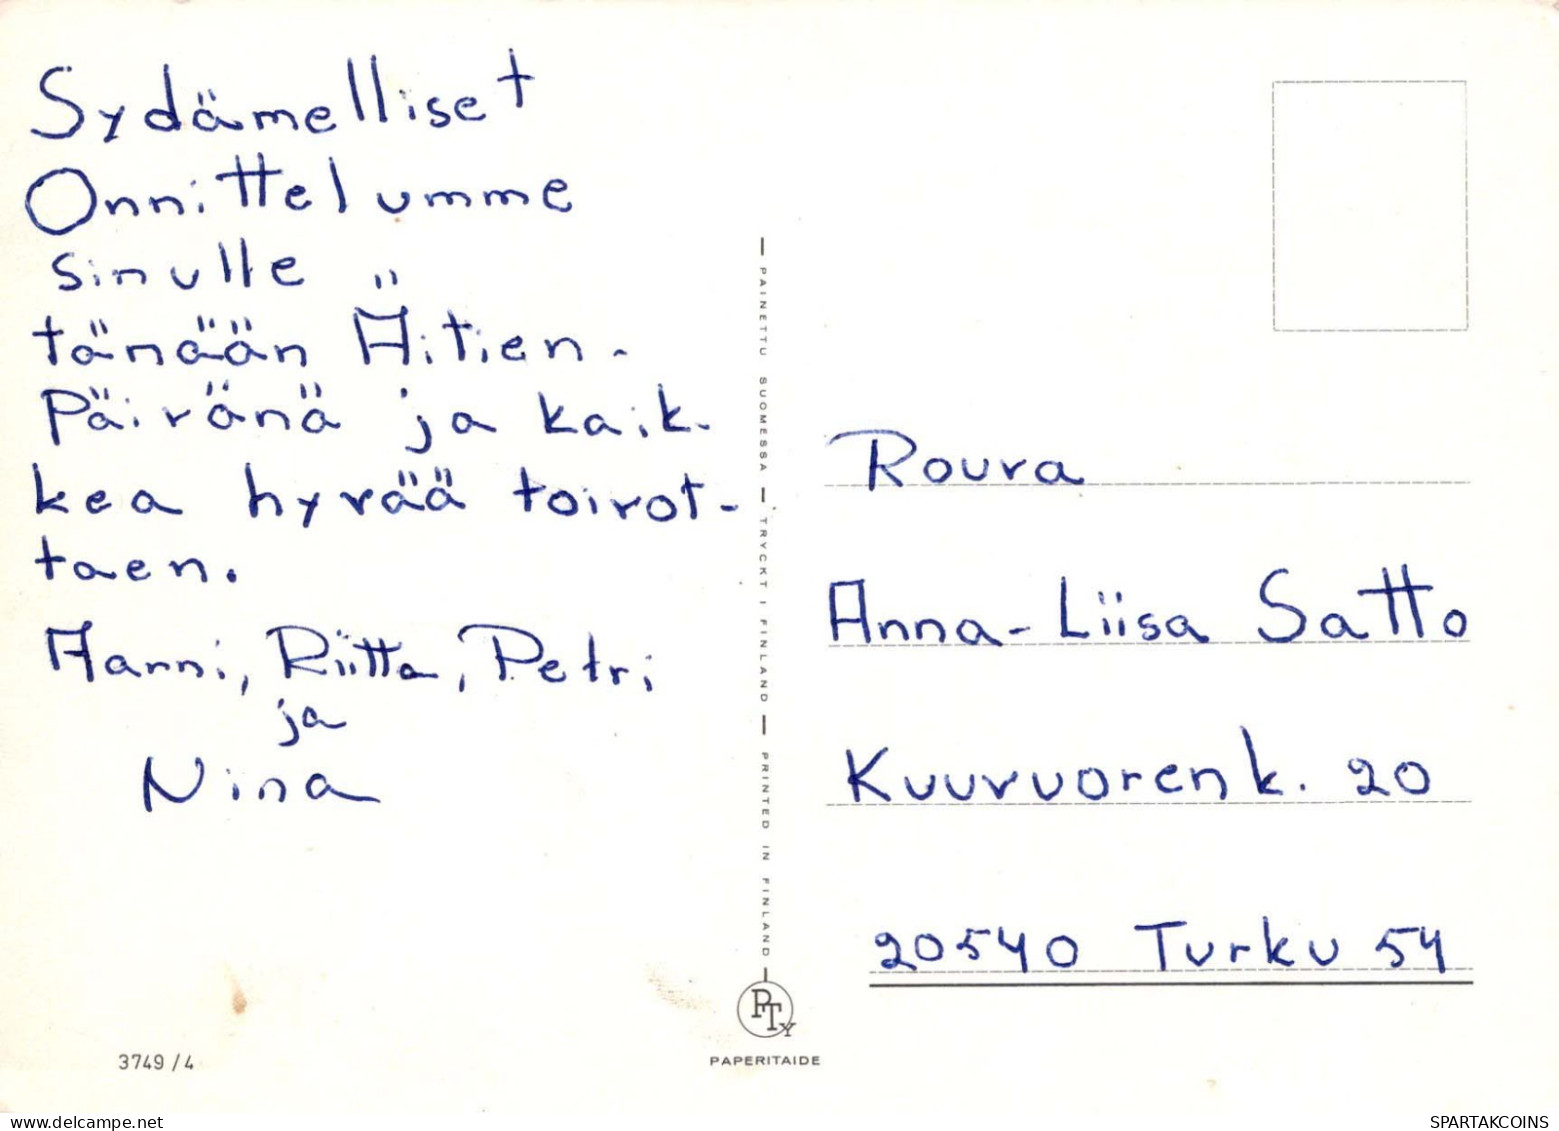 Sydämelliset
Onnittelumme
sinulle
tänään Äitien-
Päivänä ja kaik-
kea hyvää toivot-
taen.
Aarni, Riitta, Petri
ja
Nina
3749/4
PAINETTU SUOMESSA — TRYCKT I FINLAND — PRINTED IN FINLAND
PTY
PAPERITAIDE
Rouva
Anna-Liisa Satto
Kuuvuorenk. 20
20540 Turku 54
www.delcampe.net
SPARTAKCOINS